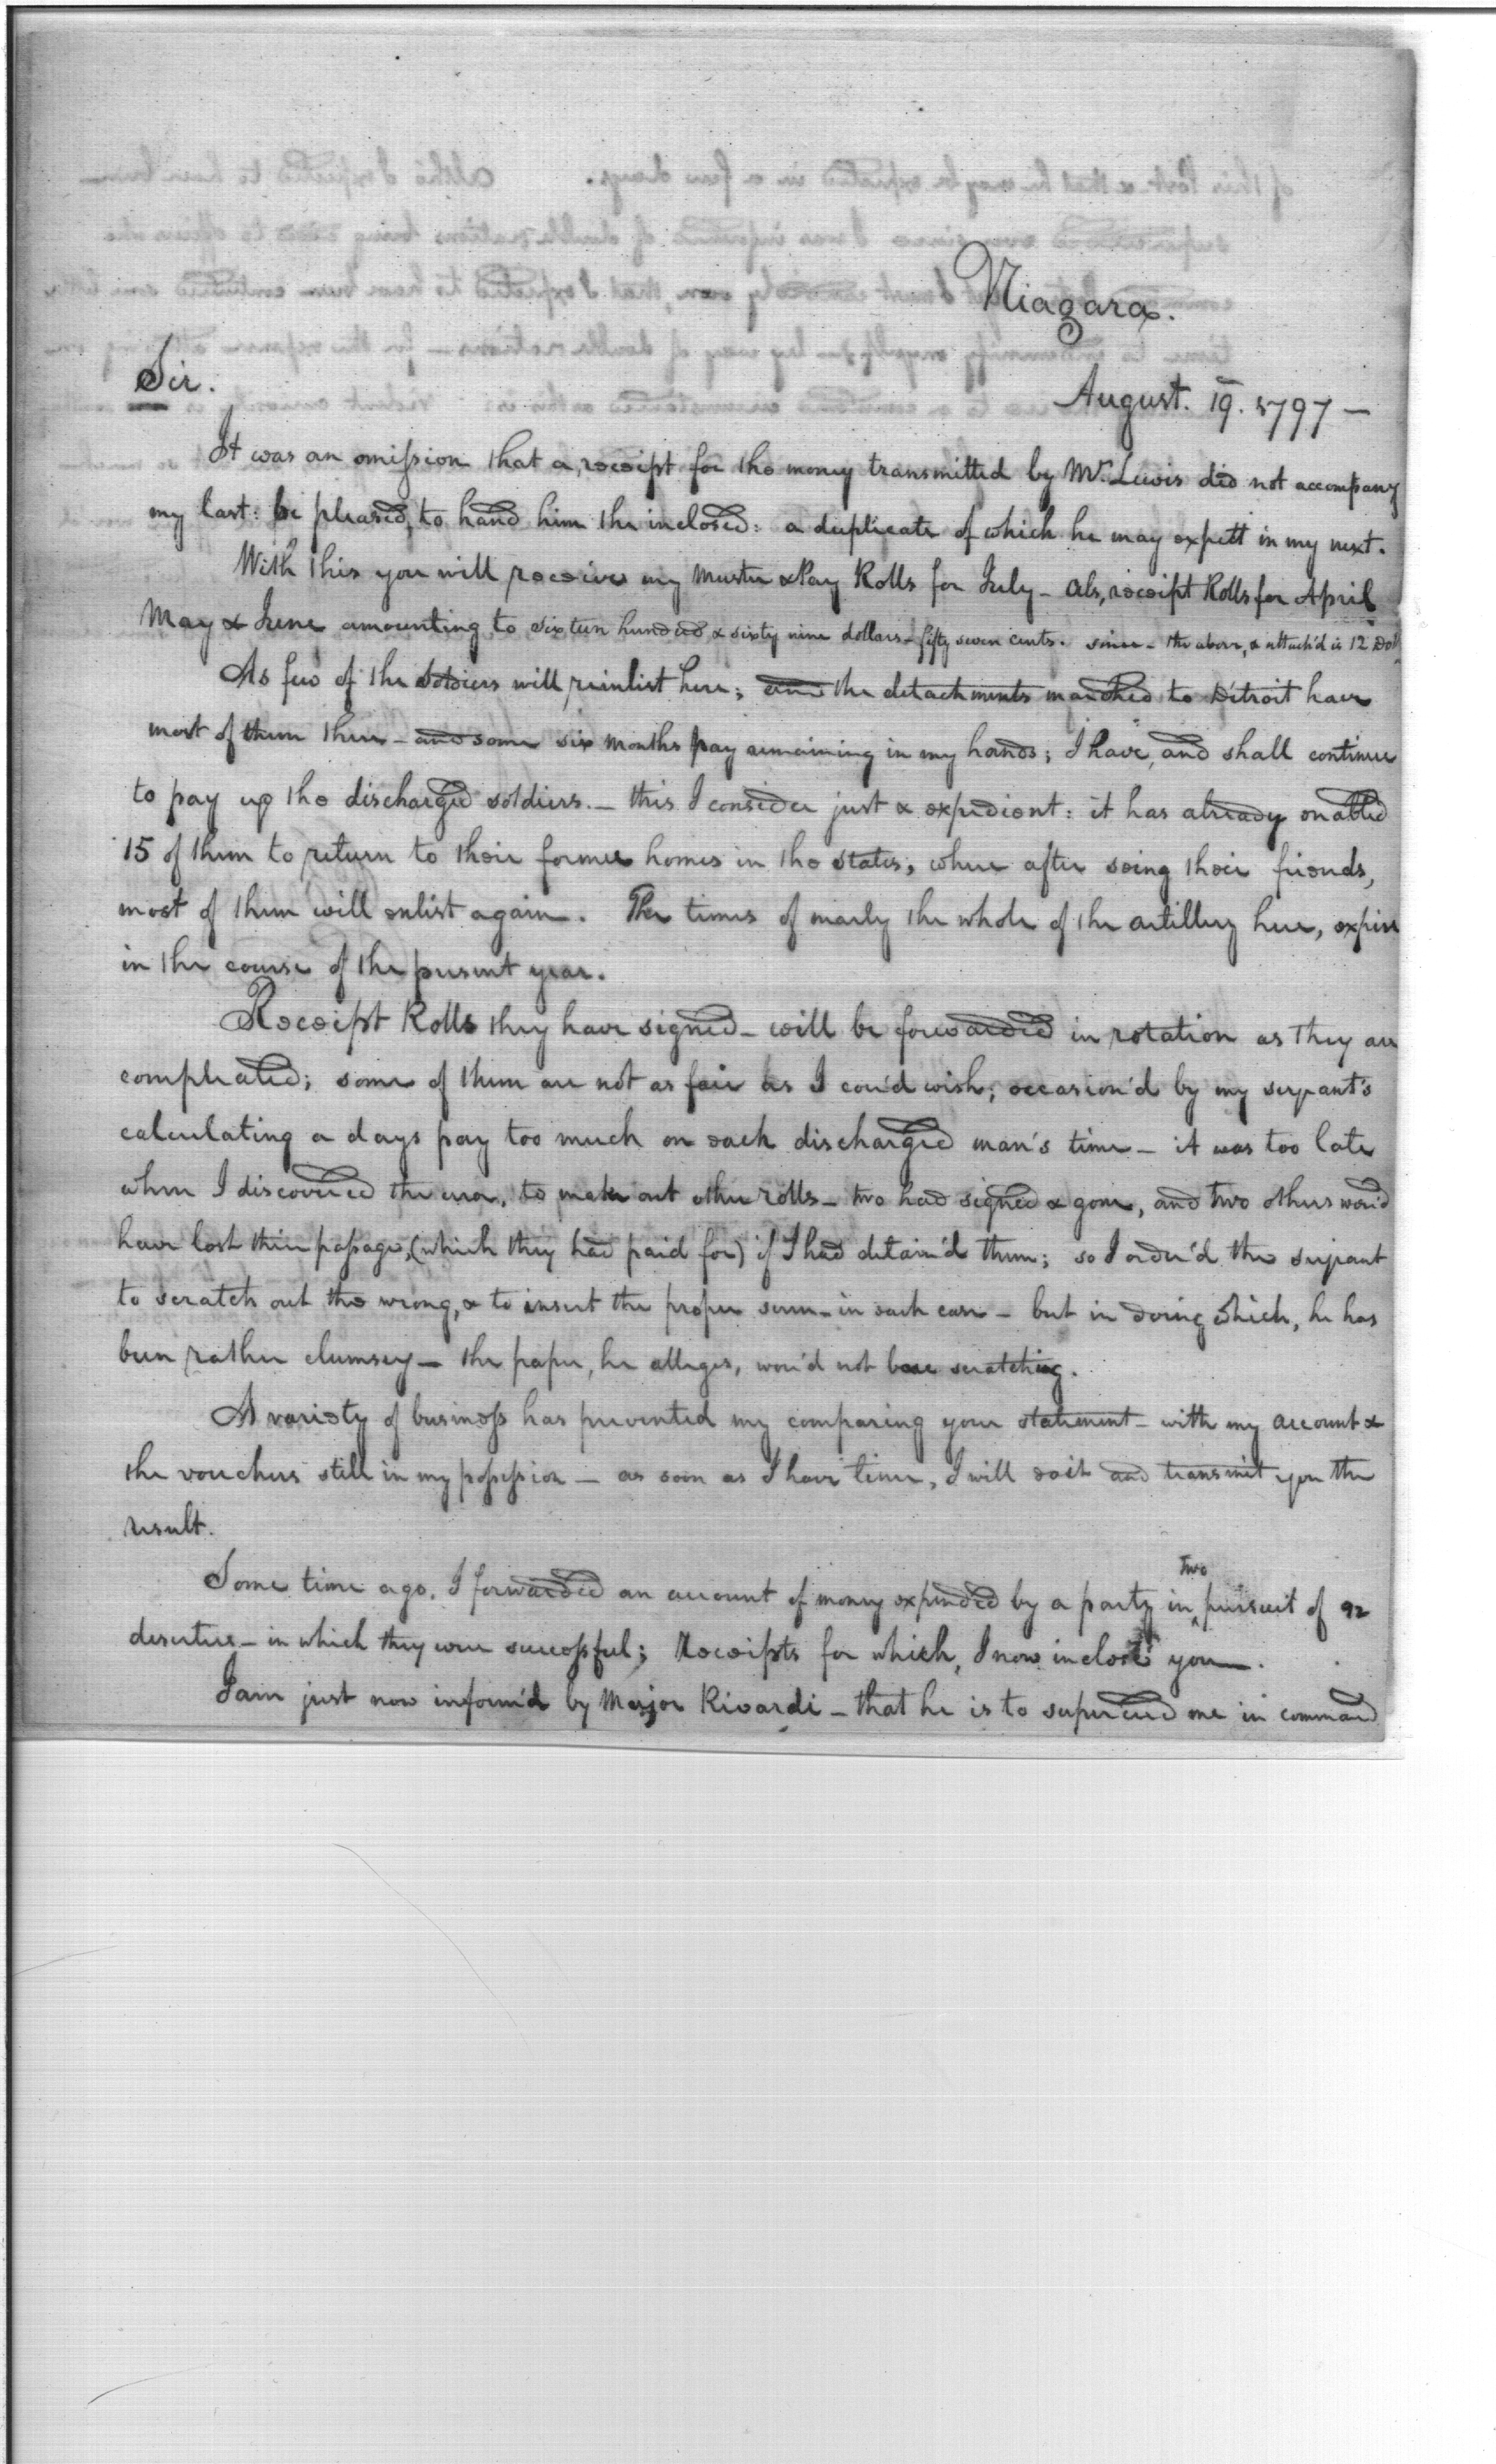 Niagara.
Sir.
August. 19. 1797 —
It was an omission that a receipt for the money transmitted by Mr. Lewis did not accompany
my last: be pleased, to hand him the inclosed: a duplicate of which he may expect in my next.
With this you will receive my Muster & Pay Rolls for July — also, receipt Rolls for April
May & June amounting to sixteen hundred & sixty nine dollars — fifty seven cents. since — the above, & attach'd is 12 Dolls
As few of the soldiers will reinlist here; and the detachments marched to Detroit have
most of them three — and some six months pay remaining in my hands; I have, and shall continue
to pay up the discharged soldiers. — this I consider just & expedient: it has already enabled
15 of them to return to their former homes in the states, where after seeing their friends,
most of them will enlist again. The times of nearly the whole of the artillery here, expire
in the course of the present year.
Receipt Rolls they have signed — will be forwarded in rotation as they are
compleated; some of them are not as fair as I cou'd wish; occasion'd by my serjeant's
calculating a days pay too much on each discharged man's time — it was too late
when I discovered the error, to make out other rolls — two had signed & gone, and two others wou'd
have lost their passage, (which they had paid for) if I had detain'd them; so I order'd the serjeant
to scratch out the wrong, & to insert the proper sum — in each case — but in doing which, he has
been rather clumsey — the paper, he alleges, wou'd not bear scratching.
A variety of business has prevented my comparing your statement — with my account &
the vouchers still in my possession — as soon as I have time, I will do it and transmit you the
result.
Some time ago, I forwarded an account of money expended by a party in two pursuit of
deserters — in which they were successful; Receipts for which, I now inclose you —.
I am just now inform'd by Major Rivardi — that he is to superceed me in command